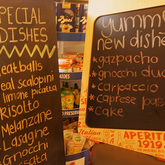 SPECIAL
DISHES
Meatballs
Veal scalopini
limone piccata
Risotto
Melanzane
Lasagne
Gnocchi
yummy
new dishes
* gazpacho
* gnocchi duo
* carpaccio
* caprese
* cake
APERITI
1919